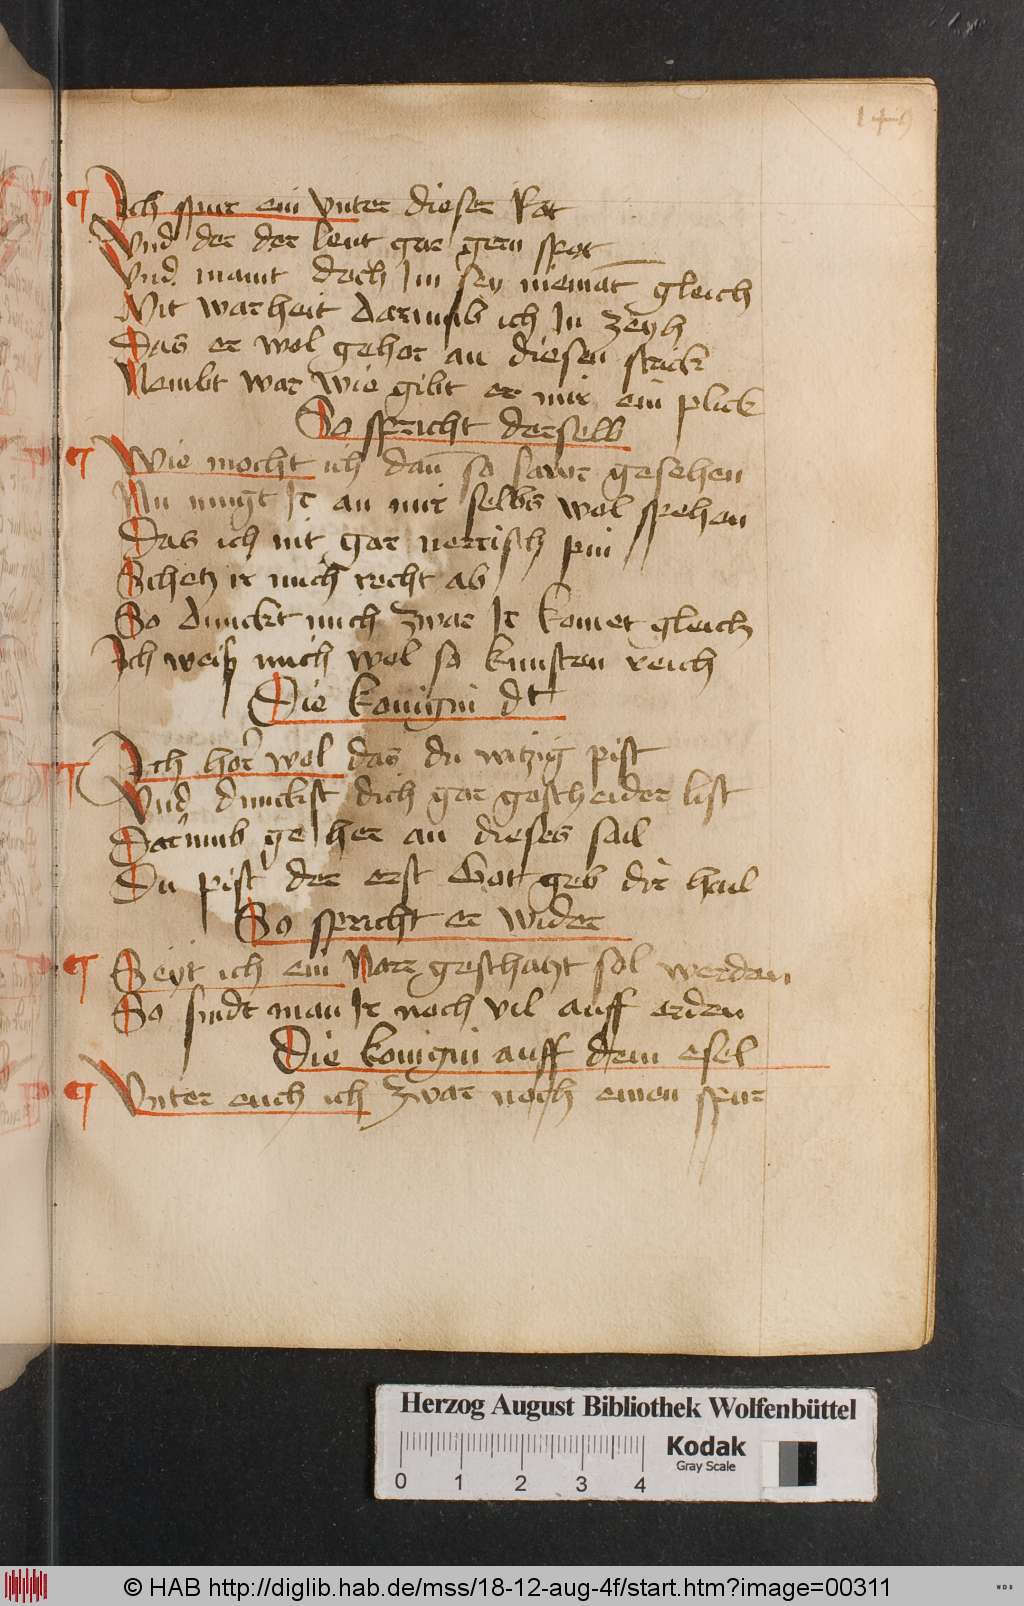 149
¶ Ich spur ein vnter dieser Rot
Vnd der der leut gar gern spot
Vnd maint doch Im sey niemat̄ gleich
Mit warheit darumb ich In zeyh
Das er wol gehor an diesen strick
Nembt war wie gibt er mir ein plick
So spricht derselb
¶ Wie mocht ich dan̄ so sawr gesehen
Nu mugt Ir an mir selbs wol spehen
Das ich nit gar nerrisch pin
Schetz ir mich recht ab
So dunckt mich zwar Ir komet gleich
Ich weiß mich wol so kunsten reich
Die konigin dt
¶ Ich hor wol das du witzig pist
Vnd dunckst dich gar gescheider list
Darumb ge her an dieses sail
Du pist der erst Got geb dir hail
So spricht er wider
¶ Seyt ich ein Narr geschatzt sol werden
So findt man Ir noch vil auff erden
Die konigin auff dem esel
¶ Vnter euch ich zwar noch einen spur
Herzog August Bibliothek Wolfenbüttel
Kodak
Gray Scale
0 1 2 3 4
© HAB http://diglib.hab.de/mss/18-12-aug-4f/start.htm?image=00311